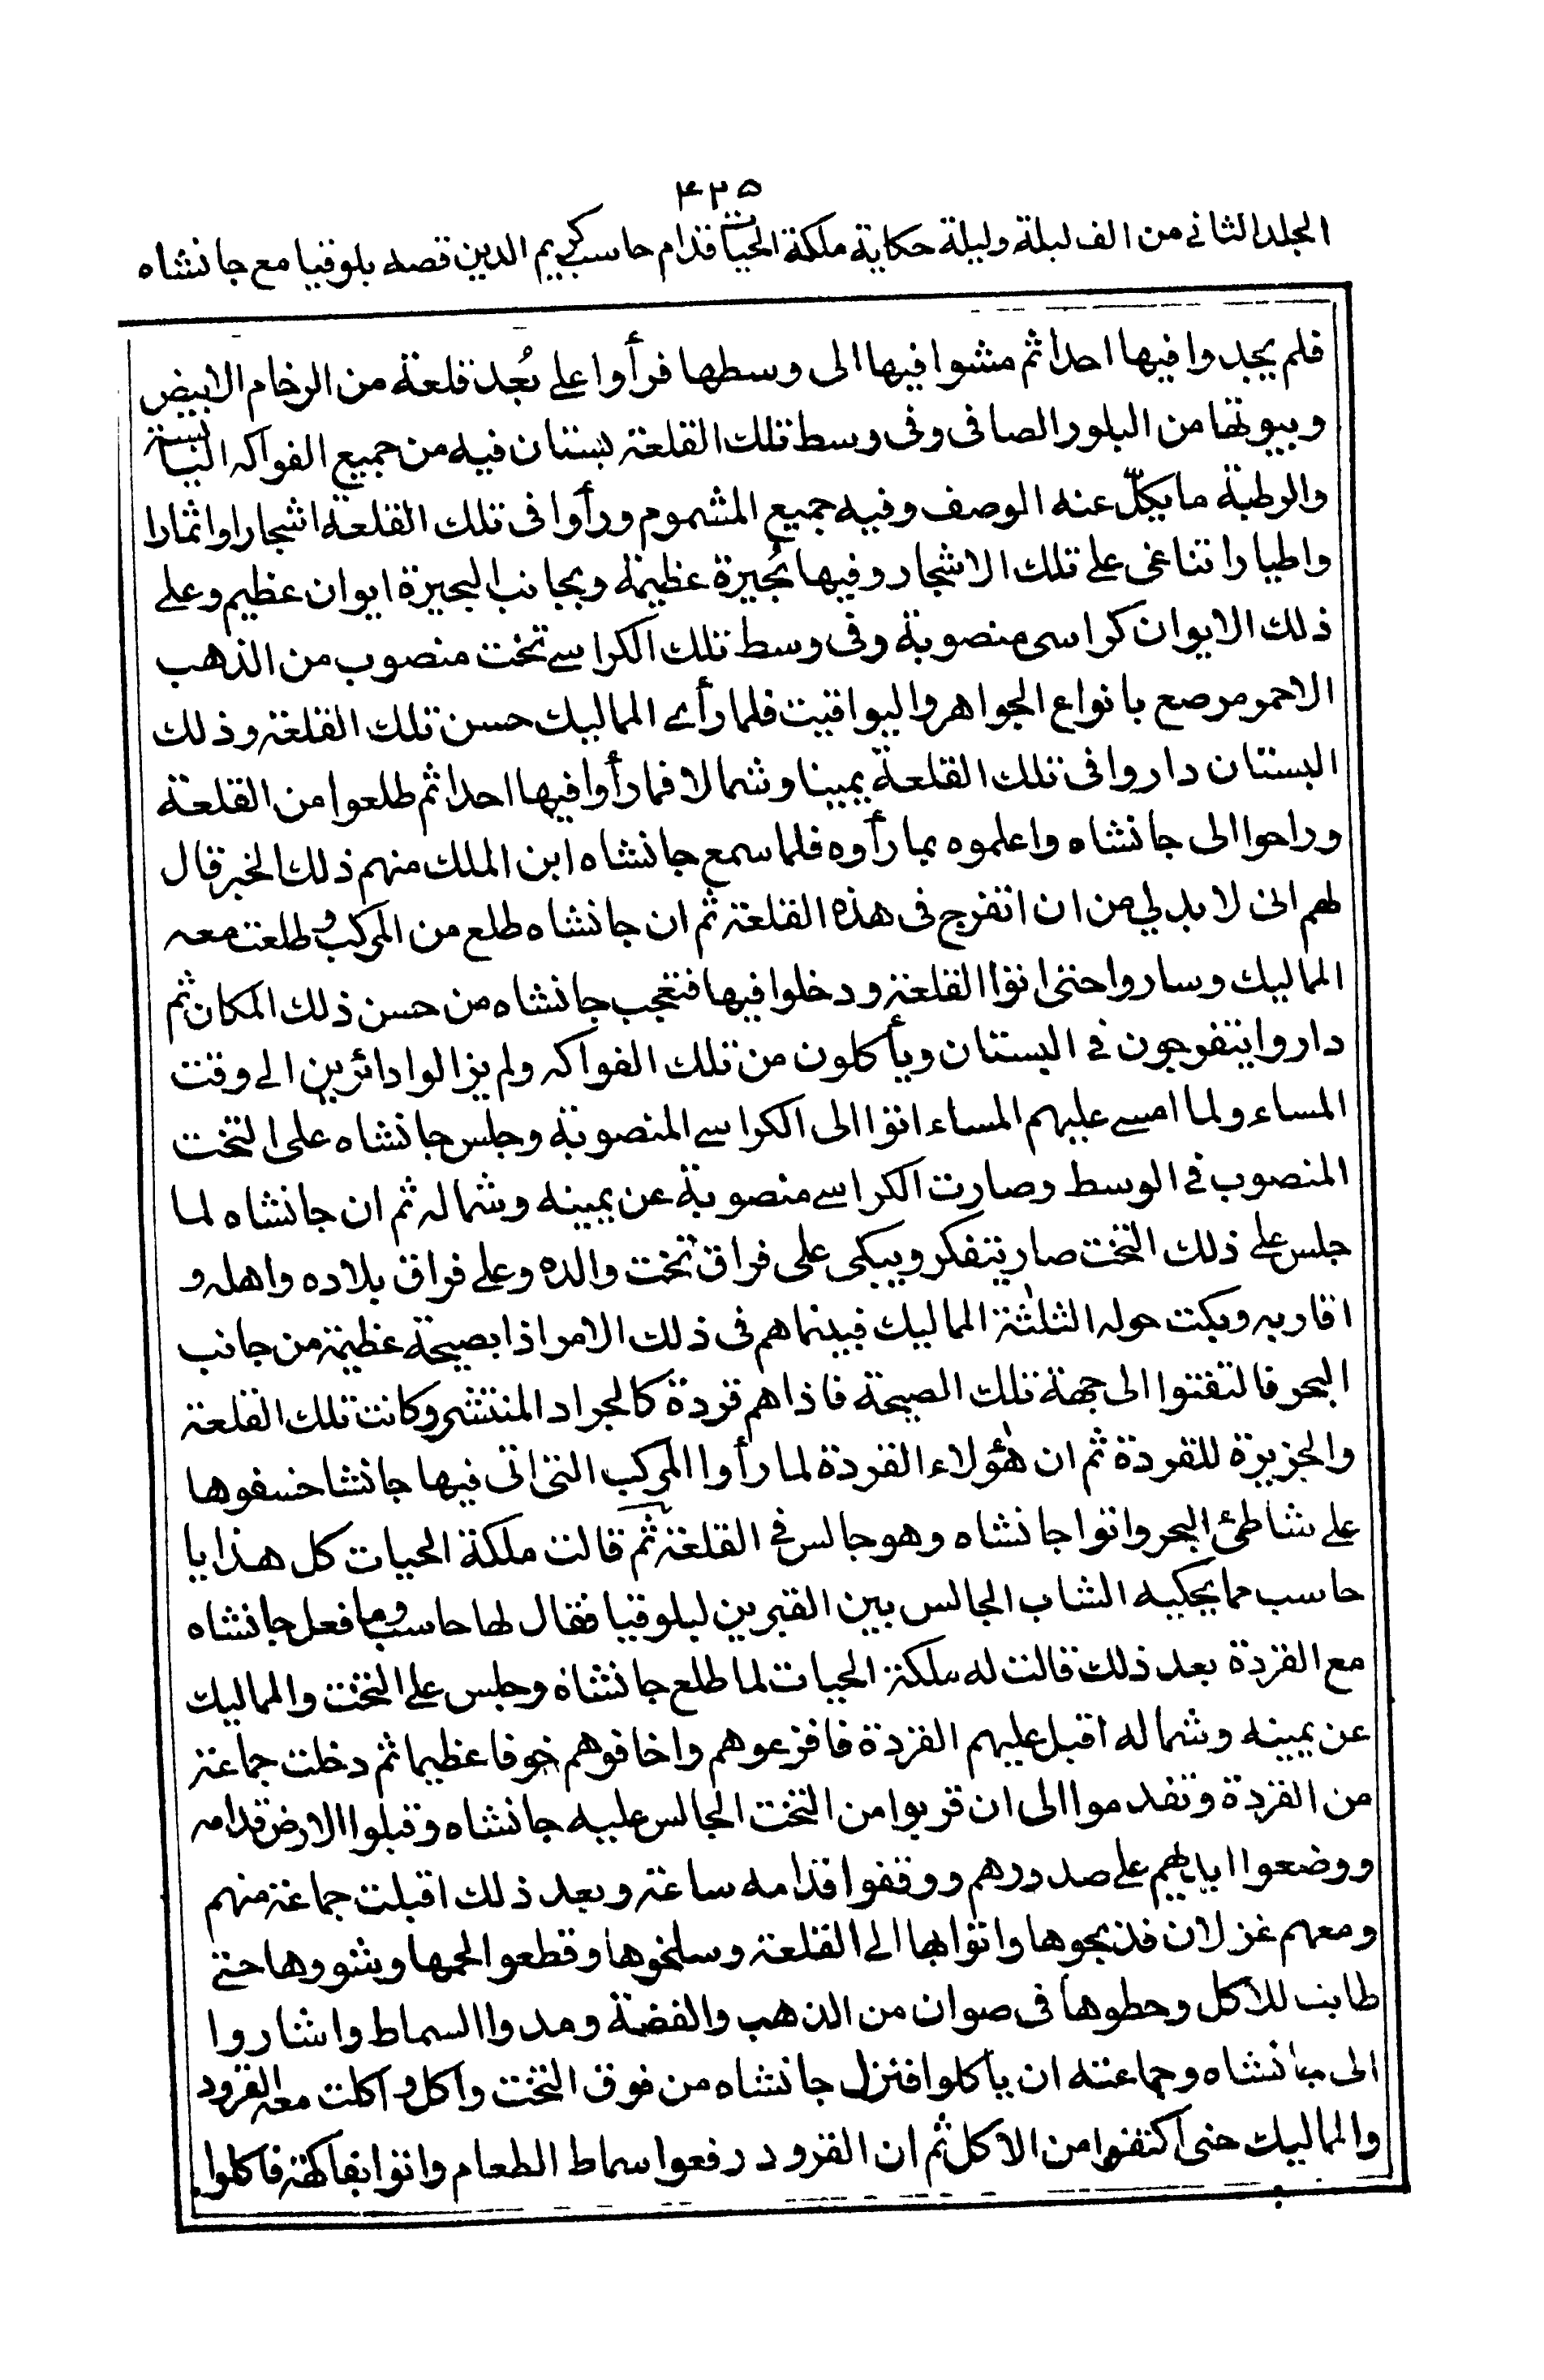 ۴۲۵
الجلد الثانى من الف ليلة وليلة حكاية ملكة الحيات قدام حاسب كريم الدين قصه بلوقيا مع جانشاه
فلم يجدوا فيها احدا ثم مشوا فيها الى وسطها فرأوا على بُعد قلعة من الرخام الابيض
وبيوتها من البلور الصافى وفى وسط تلك القلعة بستان فيه من جميع الفواكه اليابسة
والرطبة ما يكلّ عنه الوصف وفيه جميع المشموم ورأوا فى تلك القلعة اشجارا واثمارا
واطيارا تناغى على تلك الاشجار وفيها بُحيرة عظيمة وبجانب البحيرة ايوان عظيم وعلى
ذلك الايوان كراسى منصوبة وفى وسط تلك الكراسے تخت منصوب من الذهب
الاحمر مرصع بانواع الجواهر واليواقيت فلما رأے المماليك حسن تلك القلعة وذلك
البستان داروا فى تلك القلعة يمينا وشمالا فما رأوا فيها احدا ثم طلعوا من القلعة
وراحوا الى جانشاه واعلموه بما رأوه فلما سمع جانشاه ابن الملك منهم ذلك الخبر قال
لهم انى لا بد لي من ان اتفرج فى هذه القلعة ثم ان جانشاه طلع من المركب وطلعت معه
المماليك وساروا حتى اتوا القلعة ودخلوا فيها فتعجب جانشاه من حسن ذلك المكان ثم
داروا يتفرجون فے البستان ويأكلون من تلك الفواكه ولم يزالوا دائرين الے وقت
المساء ولما امسے عليهم المساء اتوا الى الكراسے المنصوبة وجلس جانشاه على التخت
المنصوب فے الوسط وصارت الكراسے منصوبة عن يمينه وشماله ثم ان جانشاه لما
جلس على ذلك التخت صار يتفكر ويبكى على فراق تخت والده وعلى فراق بلاده واهله و
اقاربه وبكت حوله الثلثة المماليك فبينما هم فى ذلك الامر اذا بصيحة عظيمة من جانب
البحر فالتفتوا الى جهة تلك الصيحة فاذا هم قردة كالجراد المنتشر وكانت تلك القلعة
والجزيرة للقردة ثم ان هٰؤلاء القردة لما رأوا المركب التى اتى فيها جانشا خسفوها
على شاطئ البحر واتوا جانشاه وهو جالس فے القلعة ثم قالت ملكة الحيات كل هذا يا
حاسب مما يحكيه الشاب الجالس بين القبرين لبلوقيا فقال لها حاسب وما فعل جانشاه
مع القردة بعد ذلك قالت له ملكة الحيات لما طلع جانشاه وجلس على التخت والمماليك
عن يمينه وشماله اقبل عليهم القردة فافزعوهم واخافوهم خوفا عظيما ثم دخلت جماعة
من القردة وتقدموا الى ان قربوا من التخت الجالس عليه جانشاه وقبلوا الارض قدامه
ووضعوا ايديهم على صدورهم ووقفوا قدامه ساعة وبعد ذلك اقبلت جماعة منهم
ومعهم غزلان فذبحوها واتوا بها الے القلعة وسلخوها وقطعوا لحمها وشووها حتے
طابت للاكل وحطوها فى صوان من الذهب والفضة ومدوا السماط واشاروا
الى جانشاه وجماعته ان يأكلوا فنزل جانشاه من فوق التخت واكل واكلت معه القرود
والمماليك حتى اكتفوا من الاكل ثم ان القرود رفعوا سماط الطعام واتوا بفاكهة فاكلوا